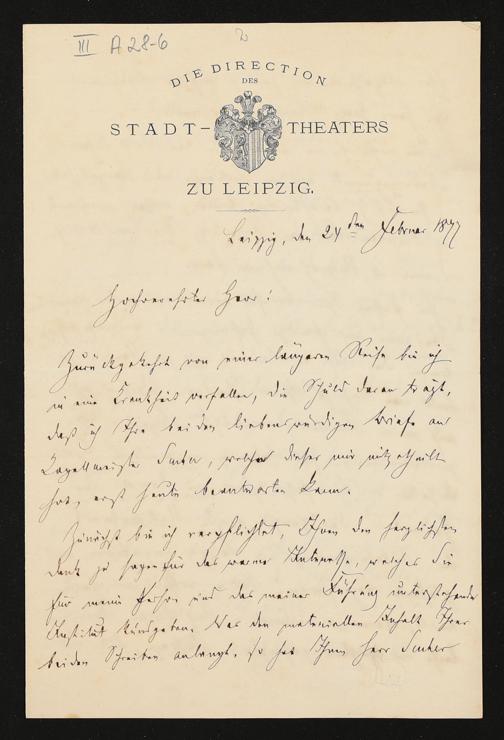 III A 28-6
2
DIE DIRECTION
DES
STADT- THEATERS
ZU LEIPZIG.
Leipzig, den 24ten Februar 1877
Hochverehrter Herr!
Zurückgekehrt von einer längeren Reise bin ich
in eine Krankheit verfallen, die Schuld daran trägt,
daß ich Ihre beiden liebenswürdigen Briefe an
Capellmeister Sucher, welche dieser mir mitgetheilt
hat, erst heute beantworten kann.
Zunächst bin ich verpflichtet, Ihnen den herzlichsten
Dank zu sagen für das warme Interesse, welches Sie
für meine Person und das meiner Führung unterstehende
Institut kundgeben. Was den materiellen Inhalt Ihrer
beiden Schreiben anlangt, so hat Ihnen Herr Sucher